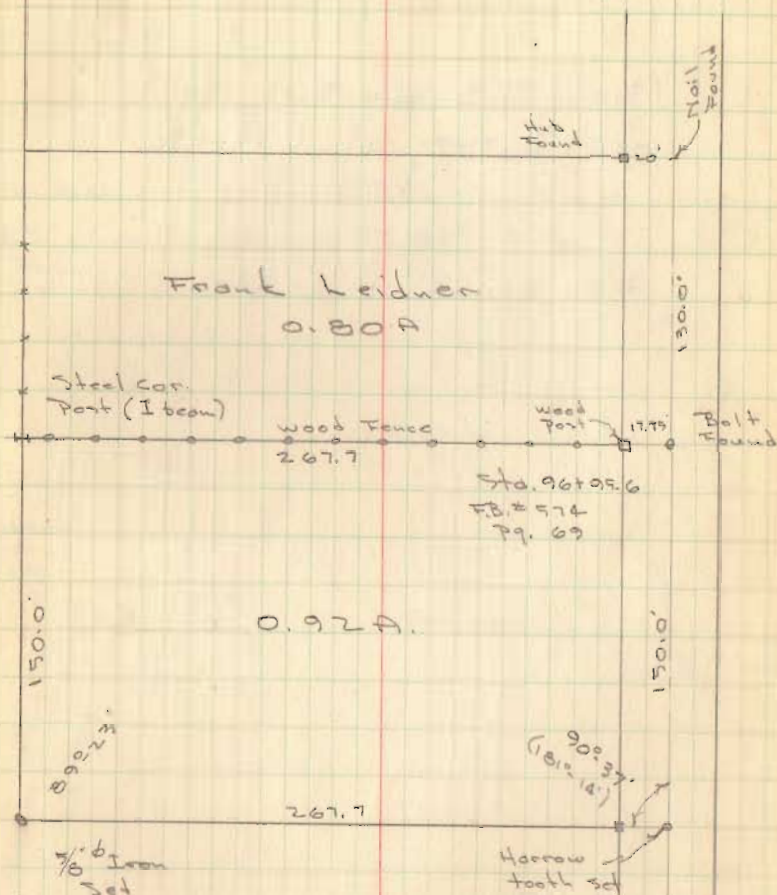 Nail
Found
Hub
Found
20'
130.0'
Frank Leidner
0.80 A
Steel Cor.
Post (I beam)
wood Fence
267.7
wood
Post
17.75'
Bolt
Found
Sta. 96+95.6
F.B. # 574
Pg. 69
0.92 A.
150.0'
150.0'
89°-23'
90°-37'
(181°-14')
267.7
5/8" φ Iron
Set
Harrow
tooth set